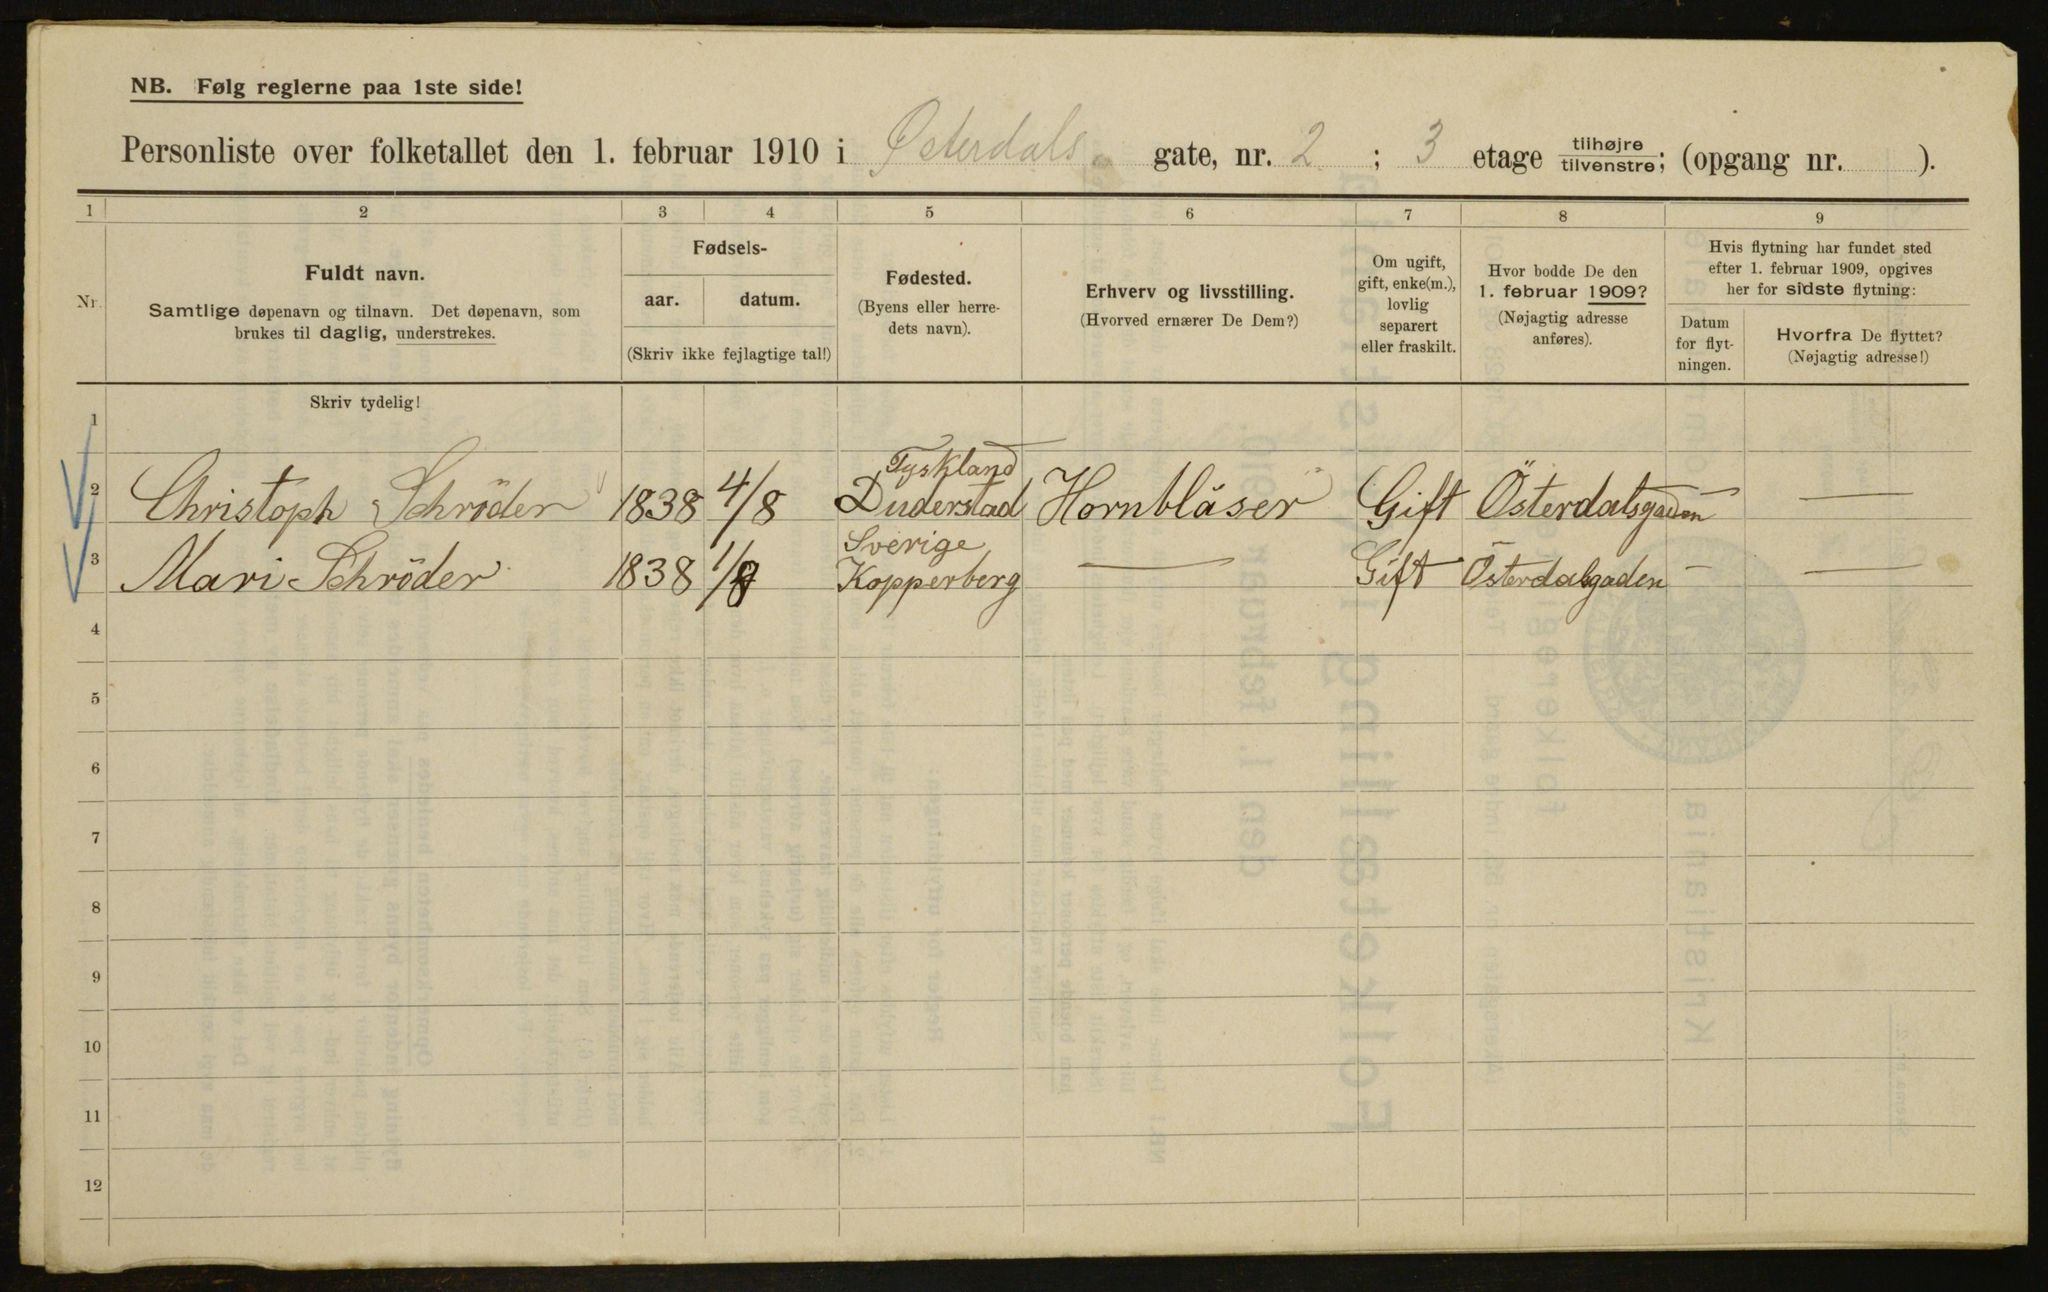 NB. Følg reglerne paa 1ste side!
Personliste over folketallet den 1. februar 1910 i Østerdals gate, nr. 2 ; 3 etage tilhøjre tilvenstre; (opgang nr. ).
1 2 3 4 5 6 7 8 9
Nr.
Fuldt navn.
Samtlige døpenavn og tilnavn. Det døpenavn, som
brukes til daglig, understrekes.
Fødsels-
aar. datum.
(Skriv ikke fejlagtige tal!)
Fødested.
(Byens eller herre-
dets navn).
Erhverv og livsstilling.
(Hvorved ernærer De Dem?)
Om ugift,
gift, enke(m.),
lovlig
separert
eller fraskilt.
Hvor bodde De den
1. februar 1909?
(Nøjagtig adresse
anføres).
Hvis flytning har fundet sted
efter 1. februar 1909, opgives
her for sidste flytning:
Datum
for flyt-
ningen.
Hvorfra De flyttet?
(Nøjagtig adresse!)
Skriv tydelig!
1
Tyskland
2 Christoph Schröder 1838 4/8 Duderstad Hornbläser Gift Österdalsgaden — —
Sverige
3 Mari Schröder 1838 1/8 Kopperberg — Gift Österdalsgaden — —
4
5
6
7
8
9
10
11
12